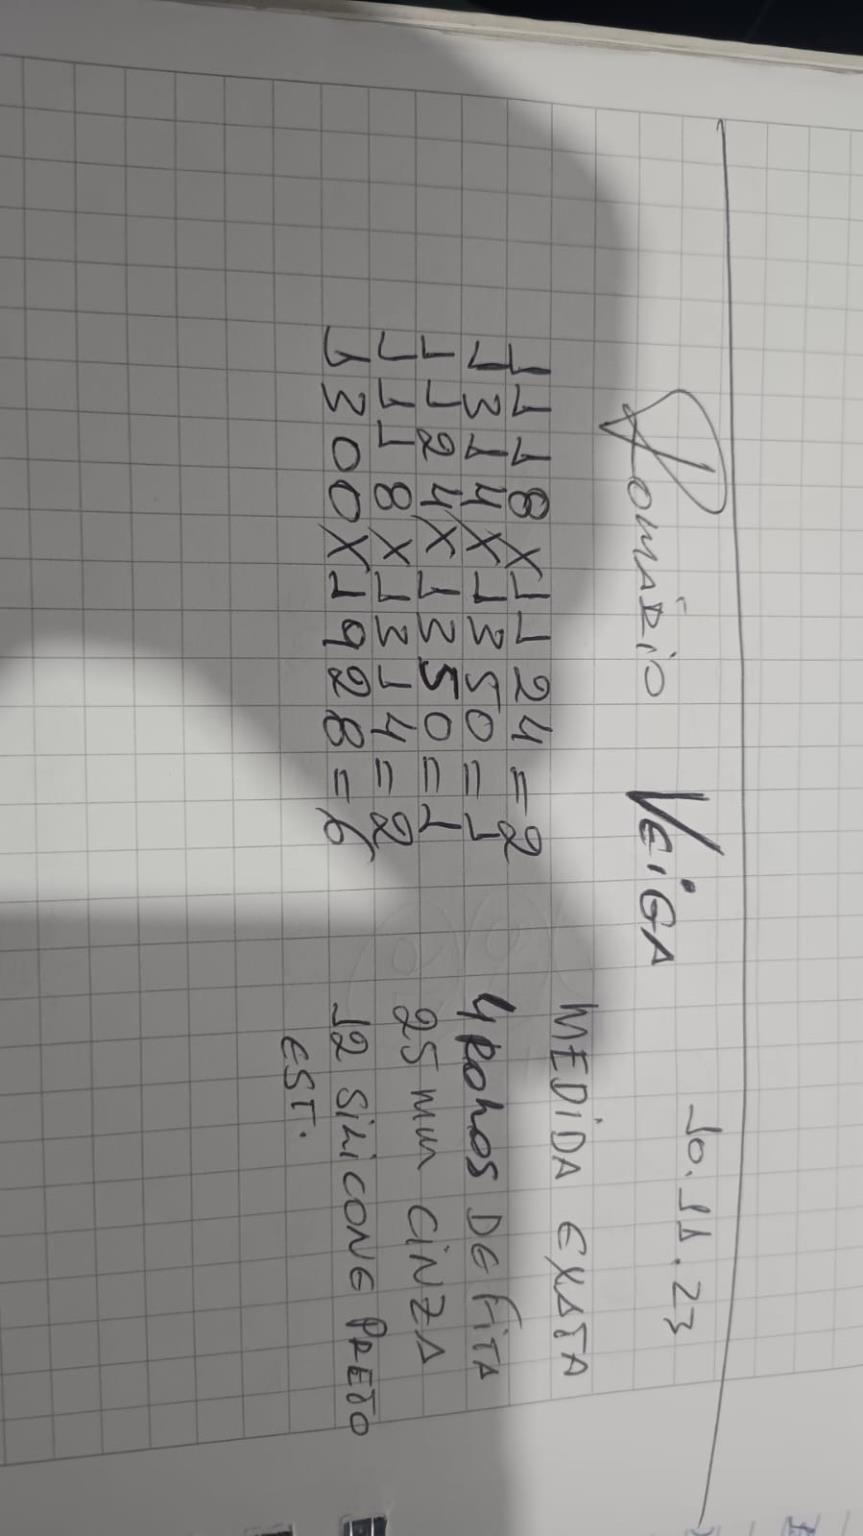 Romário VEiGA 10.11.23
1118X1124=2
1314X1350=1
1124X1350=1
1118X1314=2
1300X1928=6
MEDiDA EXATA
4 Rolos DE FiTA
25 mm CiNZA
12 SiLiCONE PRETO
EST.